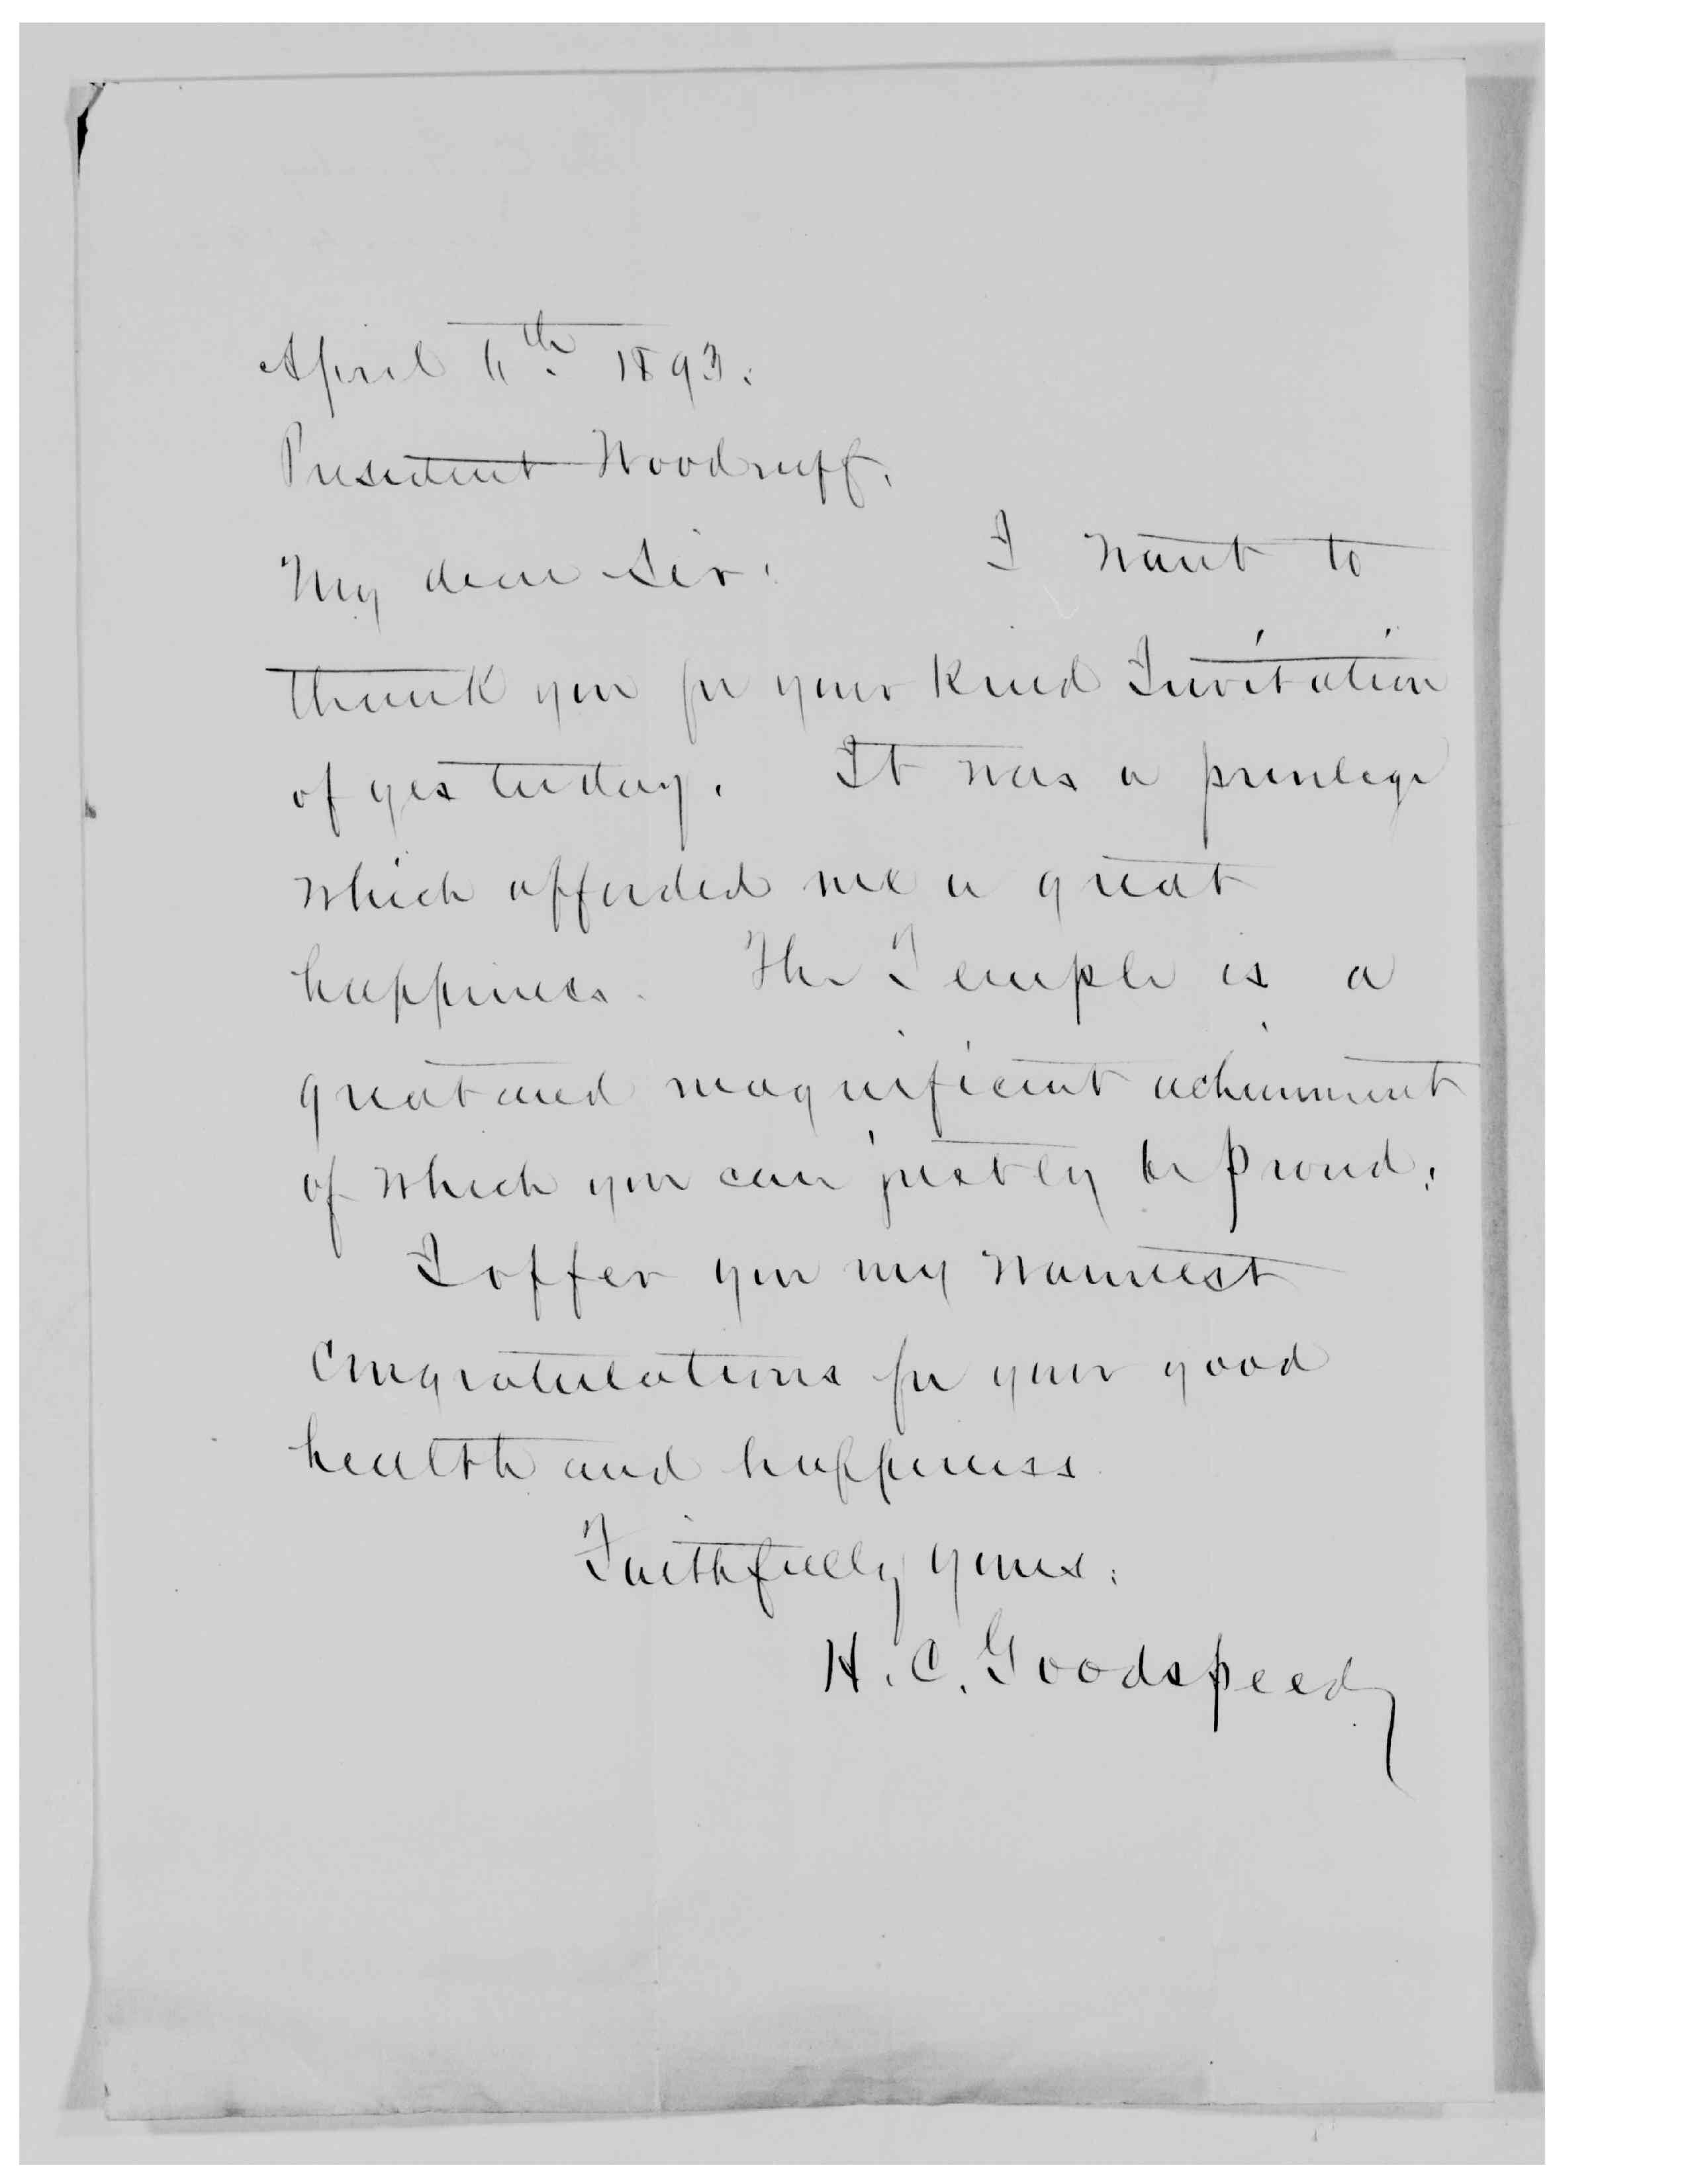 April 6th. 1893.
President Woodruff.
My dear Sir. I want to
thank you for your kind Invitation
of yesterday. It was a privilege
which afforded me a great
happiness. The Temple is a
great and magnificent achievment
of which you can justly be proud.
I offer you my warmest
congratulations for your good
health and happiness
Faithfully yours.
H. C. Goodspeed